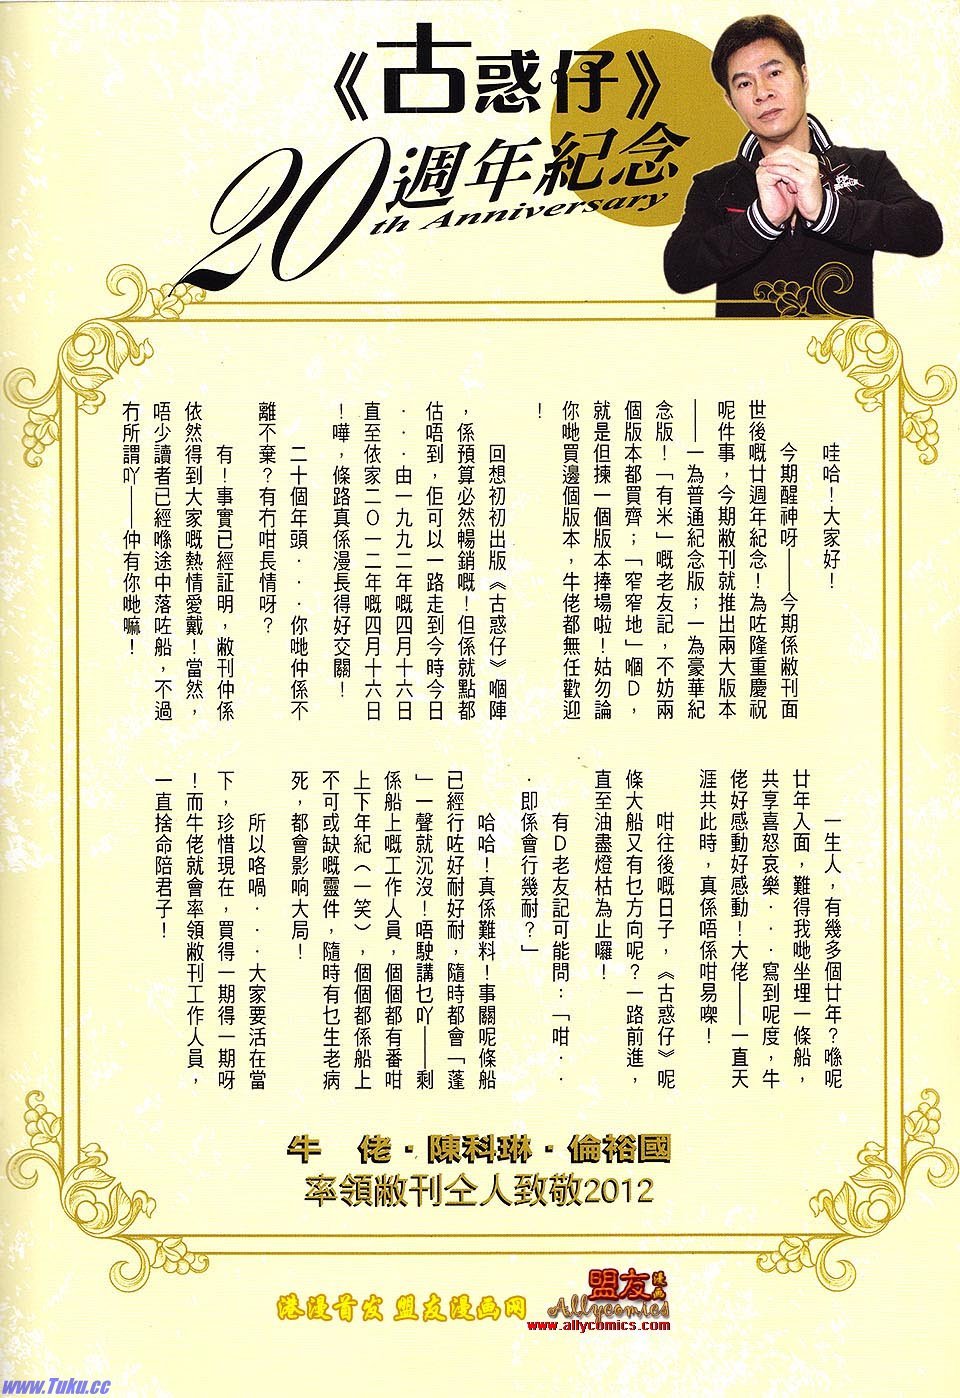 《古惑仔》
20週年紀念
th Anniversary
哇哈！大家好！
今期醒神呀——今期係敝刊面
世後嘅廿週年紀念！為咗隆重慶祝
呢件事，今期敝刊就推出兩大版本
——一為普通紀念版；一為豪華紀
念版！「有米」嘅老友記，不妨兩
個版本都買齊；「窄窄地」嗰D，
就是但揀一個版本捧場啦！姑勿論
你哋買邊個版本，牛佬都無任歡迎
！
回想初初出版《古惑仔》嗰陣
，係預算必然暢銷嘅！但係就點都
估唔到，佢可以一路走到今時今日
．．．由一九九二年嘅四月十六日
直至依家二０一二年嘅四月十六日
！嘩，條路真係漫長得好交關！
二十個年頭．．．你哋仲係不
離不棄？有冇咁長情呀？
有！事實已經証明，敝刊仲係
依然得到大家嘅熱情愛戴！當然，
唔少讀者已經喺途中落咗船，不過
冇所謂吖——仲有你哋嘛！
一生人，有幾多個廿年？喺呢
廿年入面，難得我哋坐埋一條船，
共享喜怒哀樂．．．寫到呢度，牛
佬好感動好感動！大佬——一直天
涯共此時，真係唔係咁易㗎！
咁往後嘅日子，《古惑仔》呢
條大船又有乜方向呢？一路前進，
直至油盡燈枯為止囉！
有D老友記可能問：「咁．．
．即係會行幾耐？」
哈哈！真係難料！事關呢條船
已經行咗好耐好耐，隨時都會「蓬
」一聲就沉沒！唔駛講乜吖——剩
係船上嘅工作人員，個個都有番咁
上下年紀（一笑），個個都係船上
不可或缺嘅靈件，隨時有乜生老病
死，都會影响大局！
所以咯喎．．．大家要活在當
下，珍惜現在，買得一期得一期呀
！而牛佬就會率領敝刊工作人員，
一直捨命陪君子！
牛　佬．陳科琳．倫裕國
率領敝刊仝人致敬2012
港漫首发 盟友漫画网
盟友漫画
Allycomics
www.allycomics.com
www.Tuku.cc